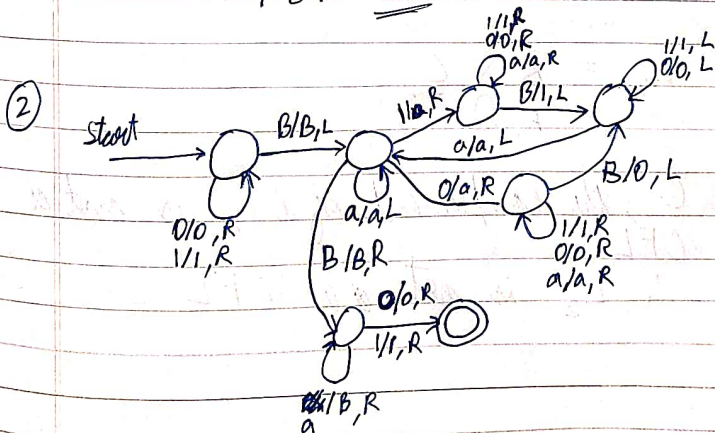 ②
Start
B/B, L
0/0, R
1/1, R
1/a, R
1/1, R
0/0, R
a/a, R
B/1, L
1/1, L
0/0, L
a/a, L
a/a, L
0/a, R
B/0, L
1/1, R
0/0, R
a/a, R
B/B, R
0/0, R
1/1, R
/B, R
a